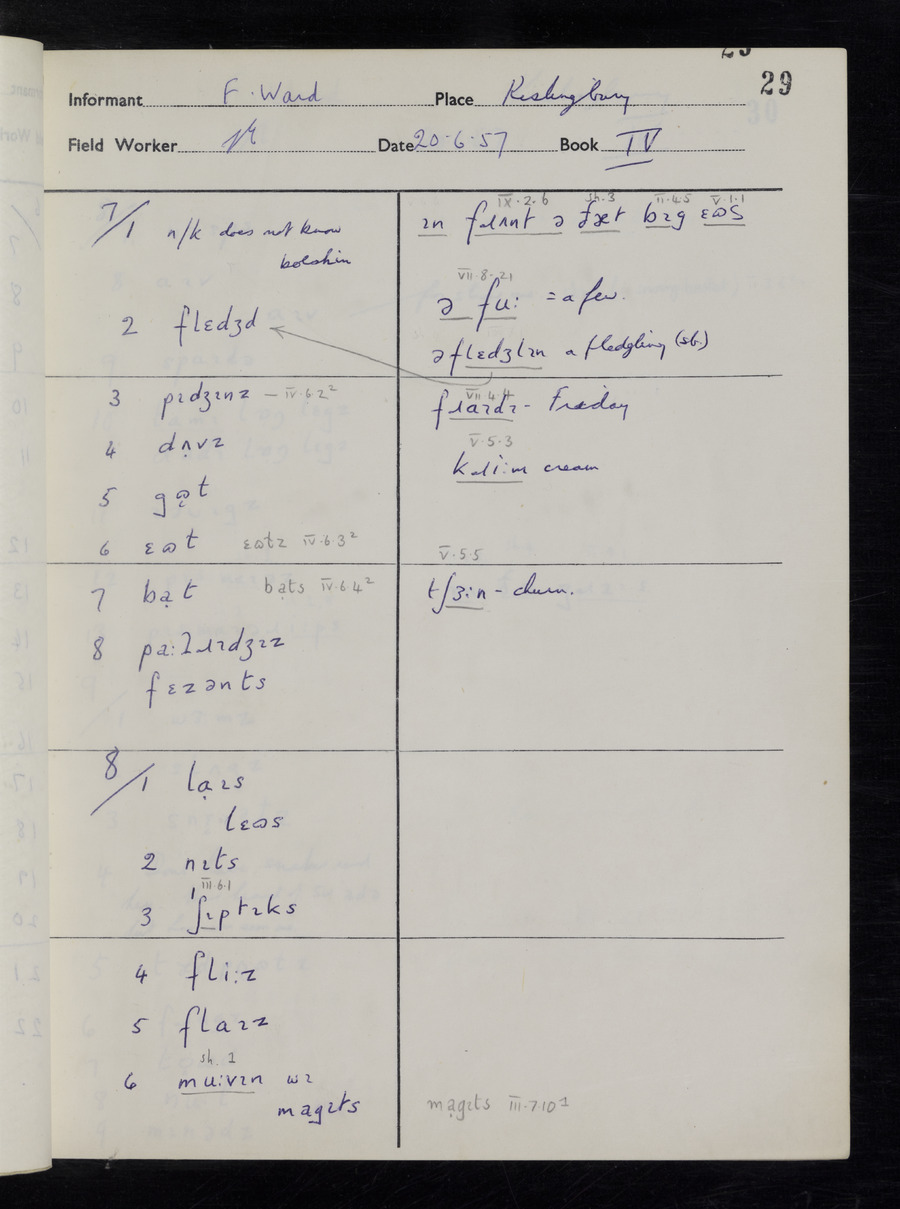 29
Informant F. Ward Place Kislingbury
Field Worker Date 20·6·57 Book IV
7/1 n/k does not know
bolshin
2 flɛdʒd
3 pɪdʒɪnz – IV·6·2²
4 dʌ̣vz
5 gɷ̣t
6 ɛɷt ɛɷtz IV·6·3²
7 bạt bạts IV·6·4²
8 pa:ʔɹɪdʒɪz
fɛzənts
8/1 lạɪs
lɛɷs
2 nɪts
III·6·1
3 ˈʃɪptɪks
4 fli:z
5 flaɪz
sh. 1
6 mu:vɪn wɪ
mạgɪts
IX·2·6 sh·3 II·4·5 V·1·1
ɪn fɹʌnt ə bɪg ɛɷs
VII·8·21
ə fu: = a few.
əflɛdʒlɪn a fledgling (sb.)
VII·4·4
fɹaɪdɪ - Friday
V·5·3
kɹi:m cream
V·5·5
tʃɜ:n - churn.
mạgɪts III·7·10¹